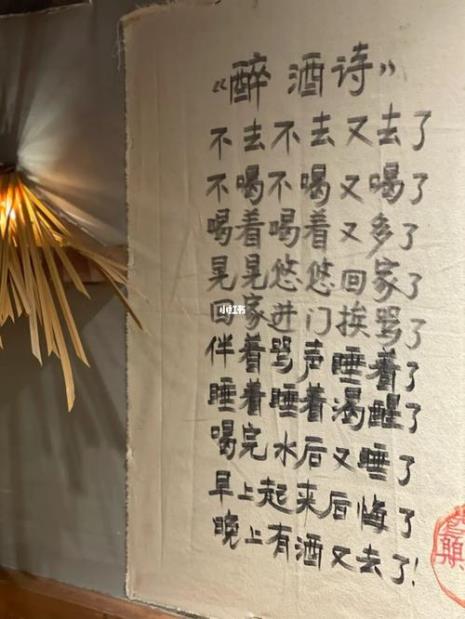 《醉酒诗》
不去不去又去了
不喝不喝又喝了
喝着喝着又多了
晃晃悠悠回家了
回家进门挨骂了
伴着骂声睡着了
睡着睡着渴醒了
喝完水后又睡了
早上起来后悔了
晚上有酒又去了!
小红书